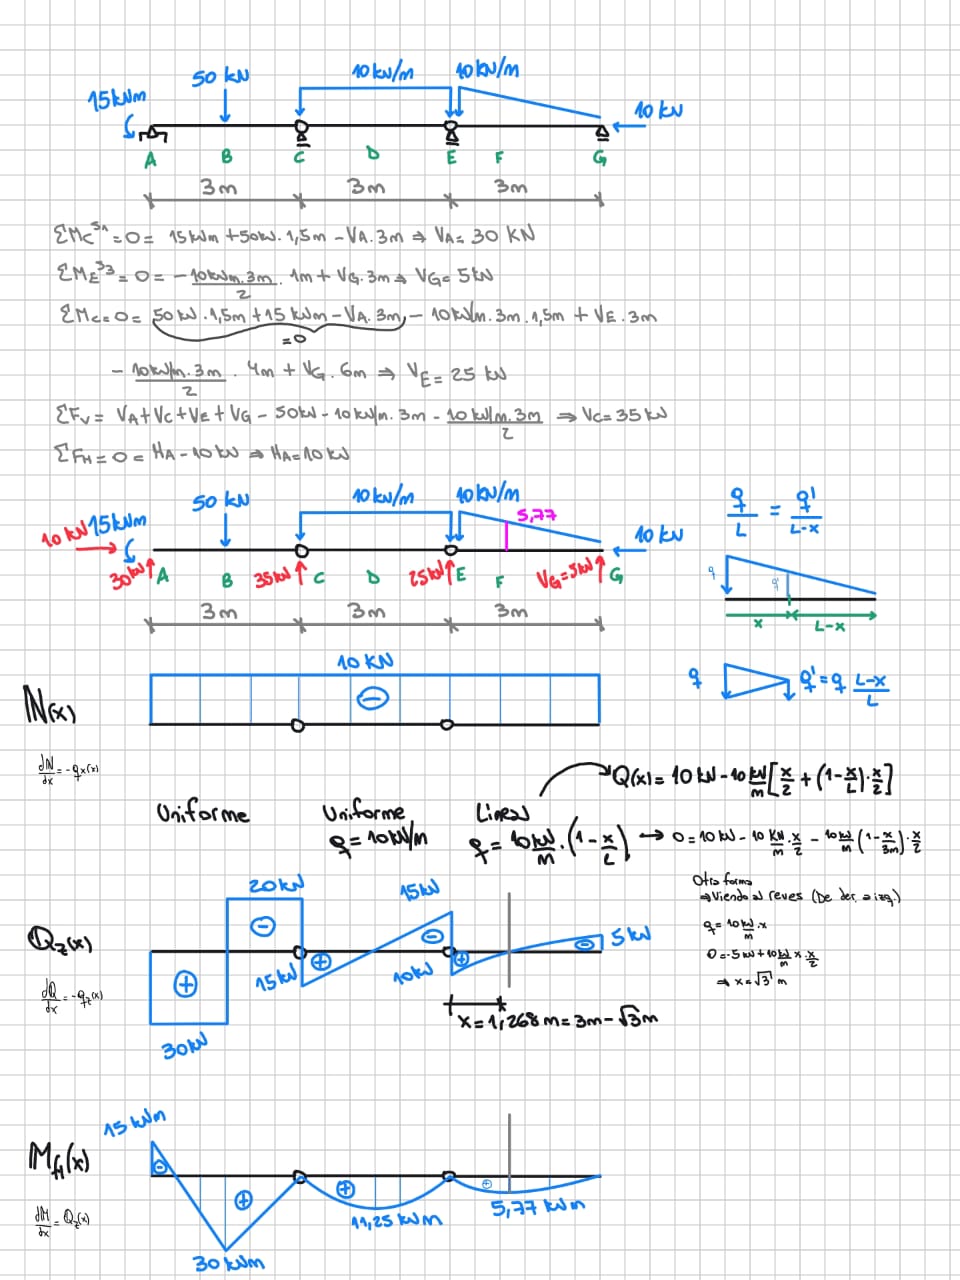 10 kN/m 10 kN/m
50 kN
15 kNm
10 kN
A B C D E F G
3m 3m 3m
ΣMc^S1 = 0 = 15 kNm + 50 kN · 1,5m - VA · 3m ⇒ VA = 30 KN
ΣME^S3 = 0 = - 10 kN/m · 3m / 2 · 1m + VG · 3m ⇒ VG = 5 kN
ΣMc = 0 = 50 kN · 1,5m + 15 kNm - VA · 3m - 10 kN/m · 3m · 1,5m + VE · 3m
= 0
- 10 kN/m · 3m / 2 · 4m + VG · 6m ⇒ VE = 25 kN
ΣFV = VA + VC + VE + VG - 50 kN - 10 kN/m · 3m - 10 kN/m · 3m / 2 ⇒ VC = 35 kN
ΣFH = 0 = HA - 10 kN ⇒ HA = 10 kN
50 kN 10 kN/m 10 kN/m
q/L = q'/L-x
5,77
10 kN 15 kNm
10 kN
30 kN A B 35 kN C D 25 kN E F VG = 5 kN G
q q'
x L-x
3m 3m 3m
10 KN
N(x)
q q' = q L-x/L
dN/dx = -qx(x)
Q(x) = 10 kN - 10 kN/m [x/2 + (1 - x/L) · x/2]
Uniforme Uniforme Lineal
q = 10 kN/m q = 10 kN/m · (1 - x/L) → 0 = 10 kN - 10 KN/m · x/2 - 10 kN/m (1 - x/3m) · x/2
Otra forma
⇒ Viendo al reves (De der. a izq.)
q = 10 kN/m · x
0 = -5 kN + 10 kN/m x x/2
⇒ x = √3 m
20 kN 15 kN
Qz(x)
5 kN
15 kN 10 kN
dQ/dx = -qz(x)
x = 1,268 m = 3m - √3 m
30 kN
15 kNm
Mf1(x)
dM/dx = Qz(x)
11,25 kNm 5,77 kNm
30 kNm